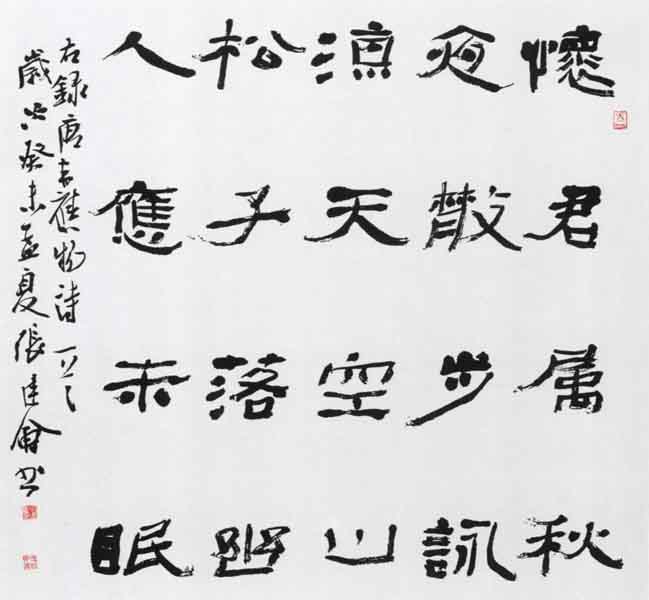 懷君属秋
夜散步詠
涼天空山
松子落幽
人應未眠
右録唐韋應物詩一首
歲次癸未孟夏張建會书